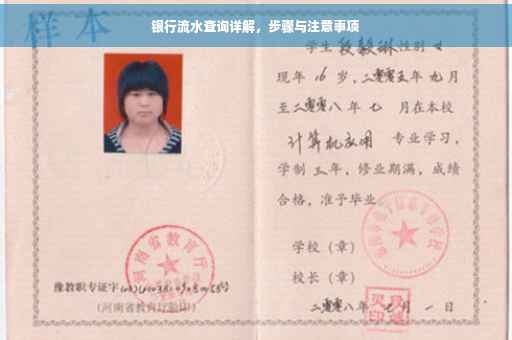 银行流水查询详解，步骤与注意事项
样本
学生段毅琳性别女
现年16岁，二零零五年九月
至二零零八年七月在本校
计算机应用 专业学习，
学制三年，修业期满，成绩
合格，准予毕业。
学校（章）
校长（章）
二零零八年七月一日
河南省教育厅
豫教职专证字
（河南省教育厅验印）